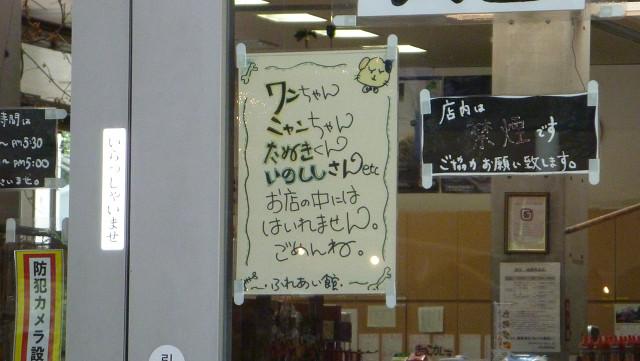 ワンちゃん
ニャンちゃん
たぬきくん
いのししさんetc
お店の中には
はいれません。
ごめんね。
～・ふれあい館・～
店内は
禁煙です
ご協力お願い致します。
いらっしゃいませ
時間は
～PM5:30
～PM5:00
防犯カメラ設
引